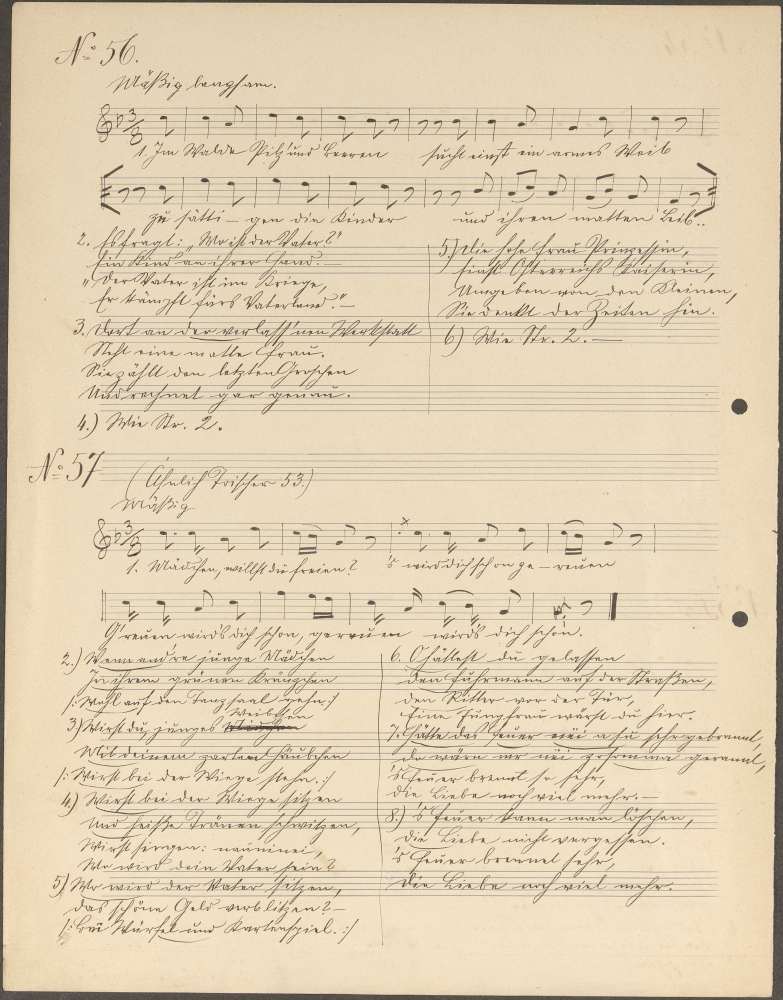 No 56.
Mäßig langsam.
1. Im Walde Pilz' und Beeren sucht einst ein armes Weib
zu sätti- gen die Kinder und ihren matten Leib.
2. Es fragt: „Wo ist der Vater?"
Ein Kind an ihrer Hand. -
„Der Vater ist im Kriege,
Er kämpft fürs Vaterland." -
3. Dort an der verlass'nen Werkstatt
Steht eine matte Frau.
Sie zählt den letzten Groschen
Und rechnet gar genau.
4.) Wie Str. 2.
5.) Die hohe Frau Prinzessin,
Einst Österreichs Kaiserin,
Umgeben von den Kleinen,
Sie denkt der Zeiten hin.
6) Wie Str. 2. -
No 57
(Ähnlich Trischer 53.)
Mäßig
1. Mädchen, willst du freien? 's wird dich schon ge- reuen
G'reuen wird's dich schon, gereuen wird's dich schon.
2.) Wenn and're junge Mädchen
In ihrem grünen Kränzchen
/: Wohl auf den Tanzsaal gehn,:/
3) Wirst du junges Weibchen
Mit deinem zarten Häubchen
/: Wirst bei der Wiege stehn. :/
4.) Wirst bei der Wiege sitzen
Und heiße Tränen schwitzen,
Wirst singen: nauninei,
Wo wird dein Vater sein?
5.) Wo wird der Vater sitzen,
das schöne Geld verblitzen? -
/: Bei Würfel und Kartenspiel. :/
6. O hättest du gelassen
Den Fuhrmann auf der Straßen,
den Ritter vor der Tür,
Eine Jungfrau wärst du hier.
7. Hätte das Feuer nei a su sehr gebrannt,
da wäre mr nei zosomma gerannt,
's Feuer brennt so sehr,
die Liebe noch viel mehr. -
8.) 's Feuer kann man löschen,
die Liebe nicht vergessen.
's Feuer brennet sehr,
Die Liebe noch viel mehr.